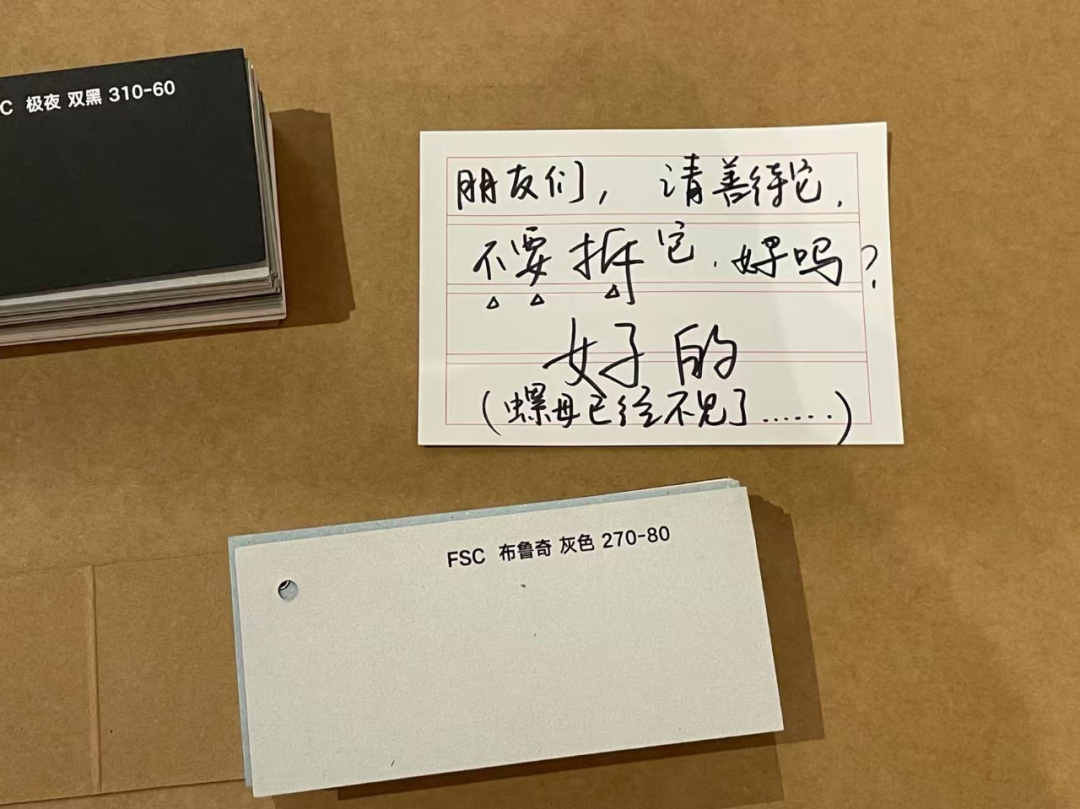 C 极夜 双黑 310-60
朋友们，请善待它，
不要拆它，好吗？
好的
（螺母已经不见了……）
FSC 布鲁奇 灰色 270-80